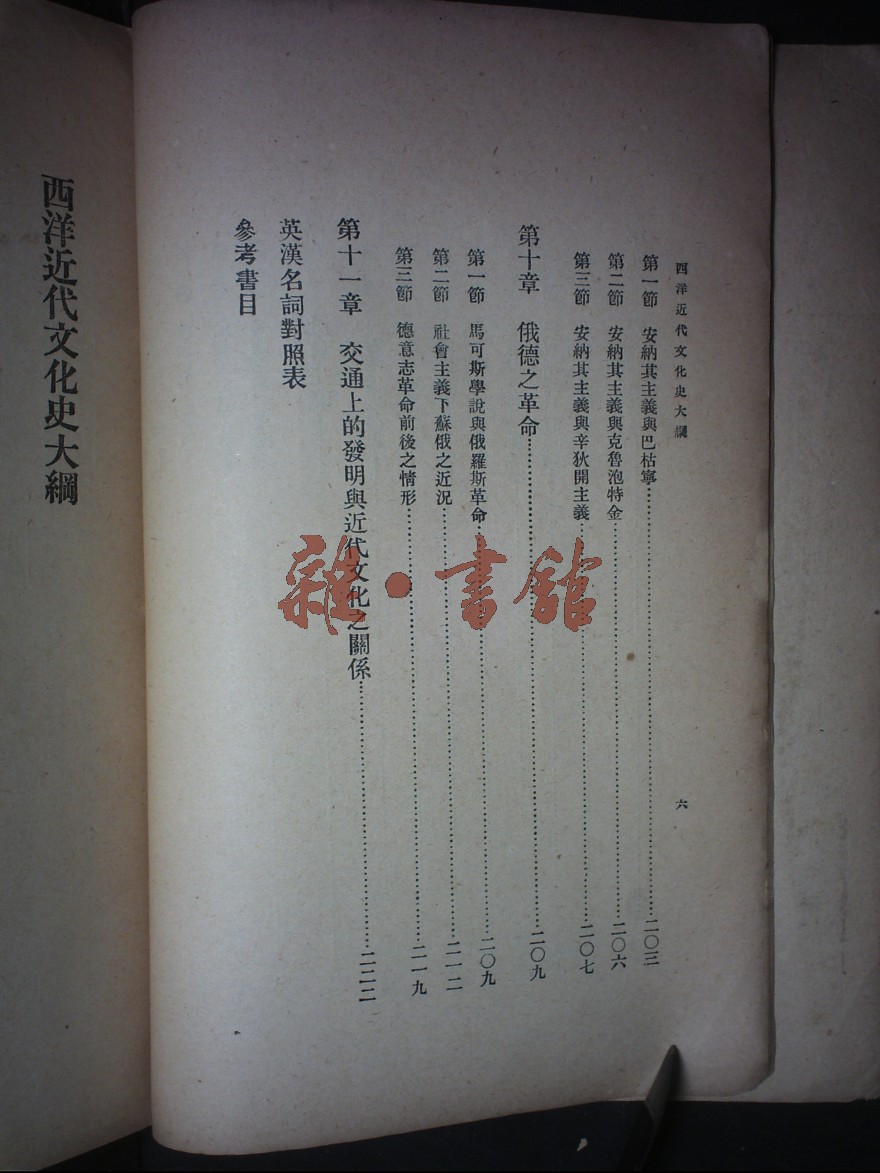 西洋近代文化史大綱
六
第一節 安納其主義與巴枯寧……二〇三
第二節 安納其主義與克魯泡特金……二〇六
第三節 安納其主義與辛狄開主義……二〇七
第十章 俄德之革命……二〇九
第一節 馬可斯學說與俄羅斯革命……二〇九
第二節 社會主義下蘇俄之近況……二一二
第三節 德意志革命前後之情形……二一九
第十一章 交通上的發明與近代文化之關係……二二二
英漢名詞對照表
參考書目
西洋近代文化史大綱
雜·書館